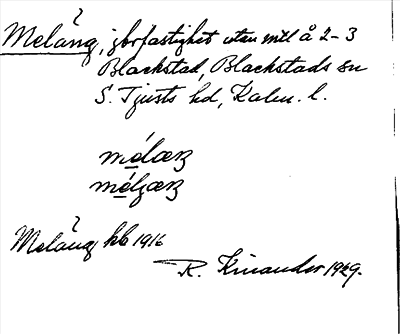 ?
Melång, jbrfastighet utan mtl å 2-3
Blackstad, Blackstads sn
S. Tjusts hd, Kalm. l.
mélæŋ
?
Melång hb 1916
R. Kinander 1929.